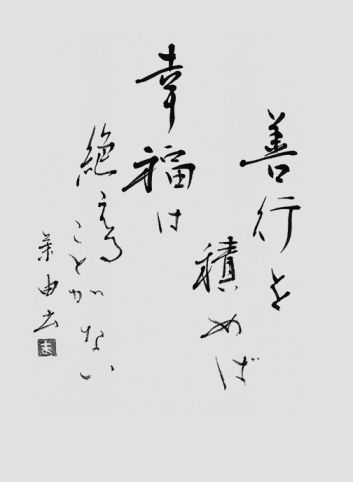 善行を
積めば
幸福は
絶える
ことがない